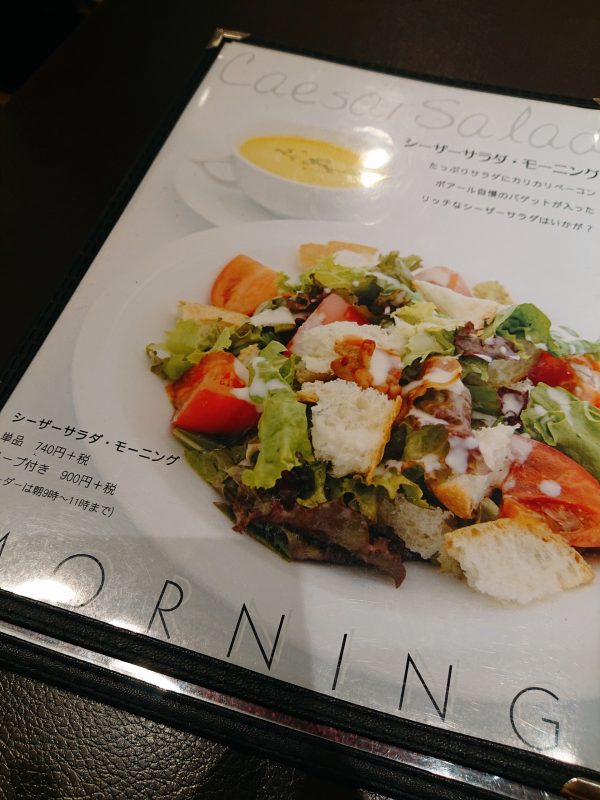 Caesar Salad
シーザーサラダ・モーニング
たっぷりサラダにカリカリベーコン
ポアール自慢のバゲットが入った
リッチなシーザーサラダはいかが?
シーザーサラダ・モーニング
単品 740円+税
ープ付き 900円+税
ーダーは朝9時~11時まで)
MORNING